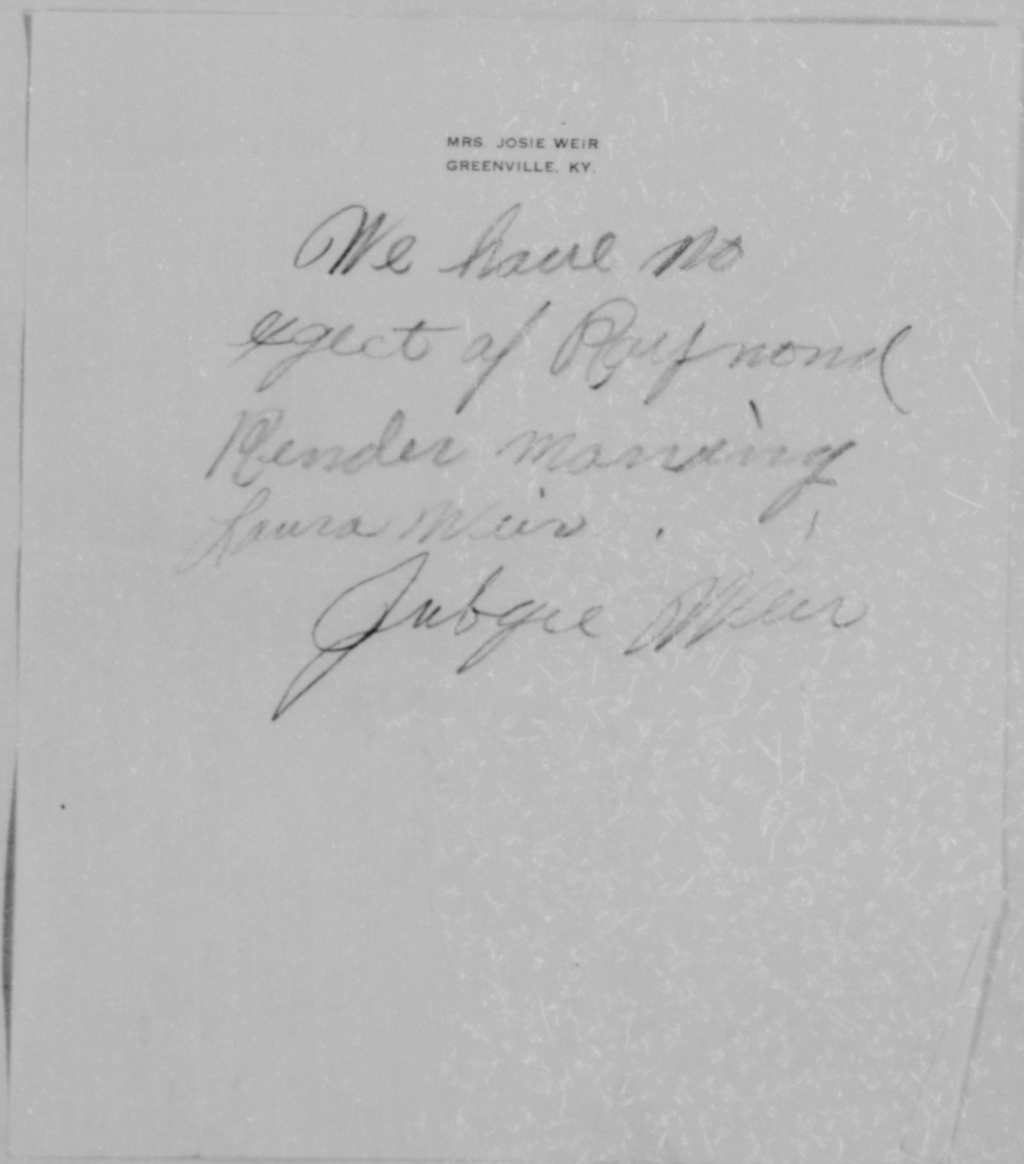 MRS. JOSIE WEIR
GREENVILLE, KY.
We have no
egect of Raymond
Render marreing
Laura Weir .
Jubgie Weir